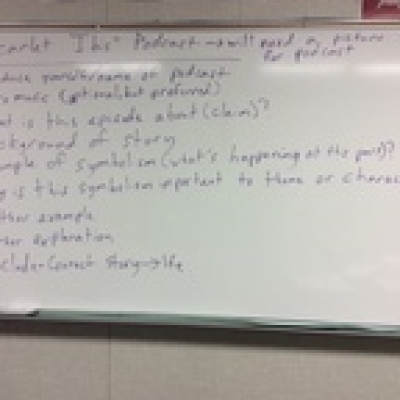 carlet Ibis" Podcast → will need a picture for podcast
duce yourself/name of podcast
o music (optional, but preferred)
at is this episode about (claim)?
ckground of story
ample of symbolism (what's happening at this part)?
y is this symbolism important to theme or charac
ther example
her explanation
clude - Connect story → life